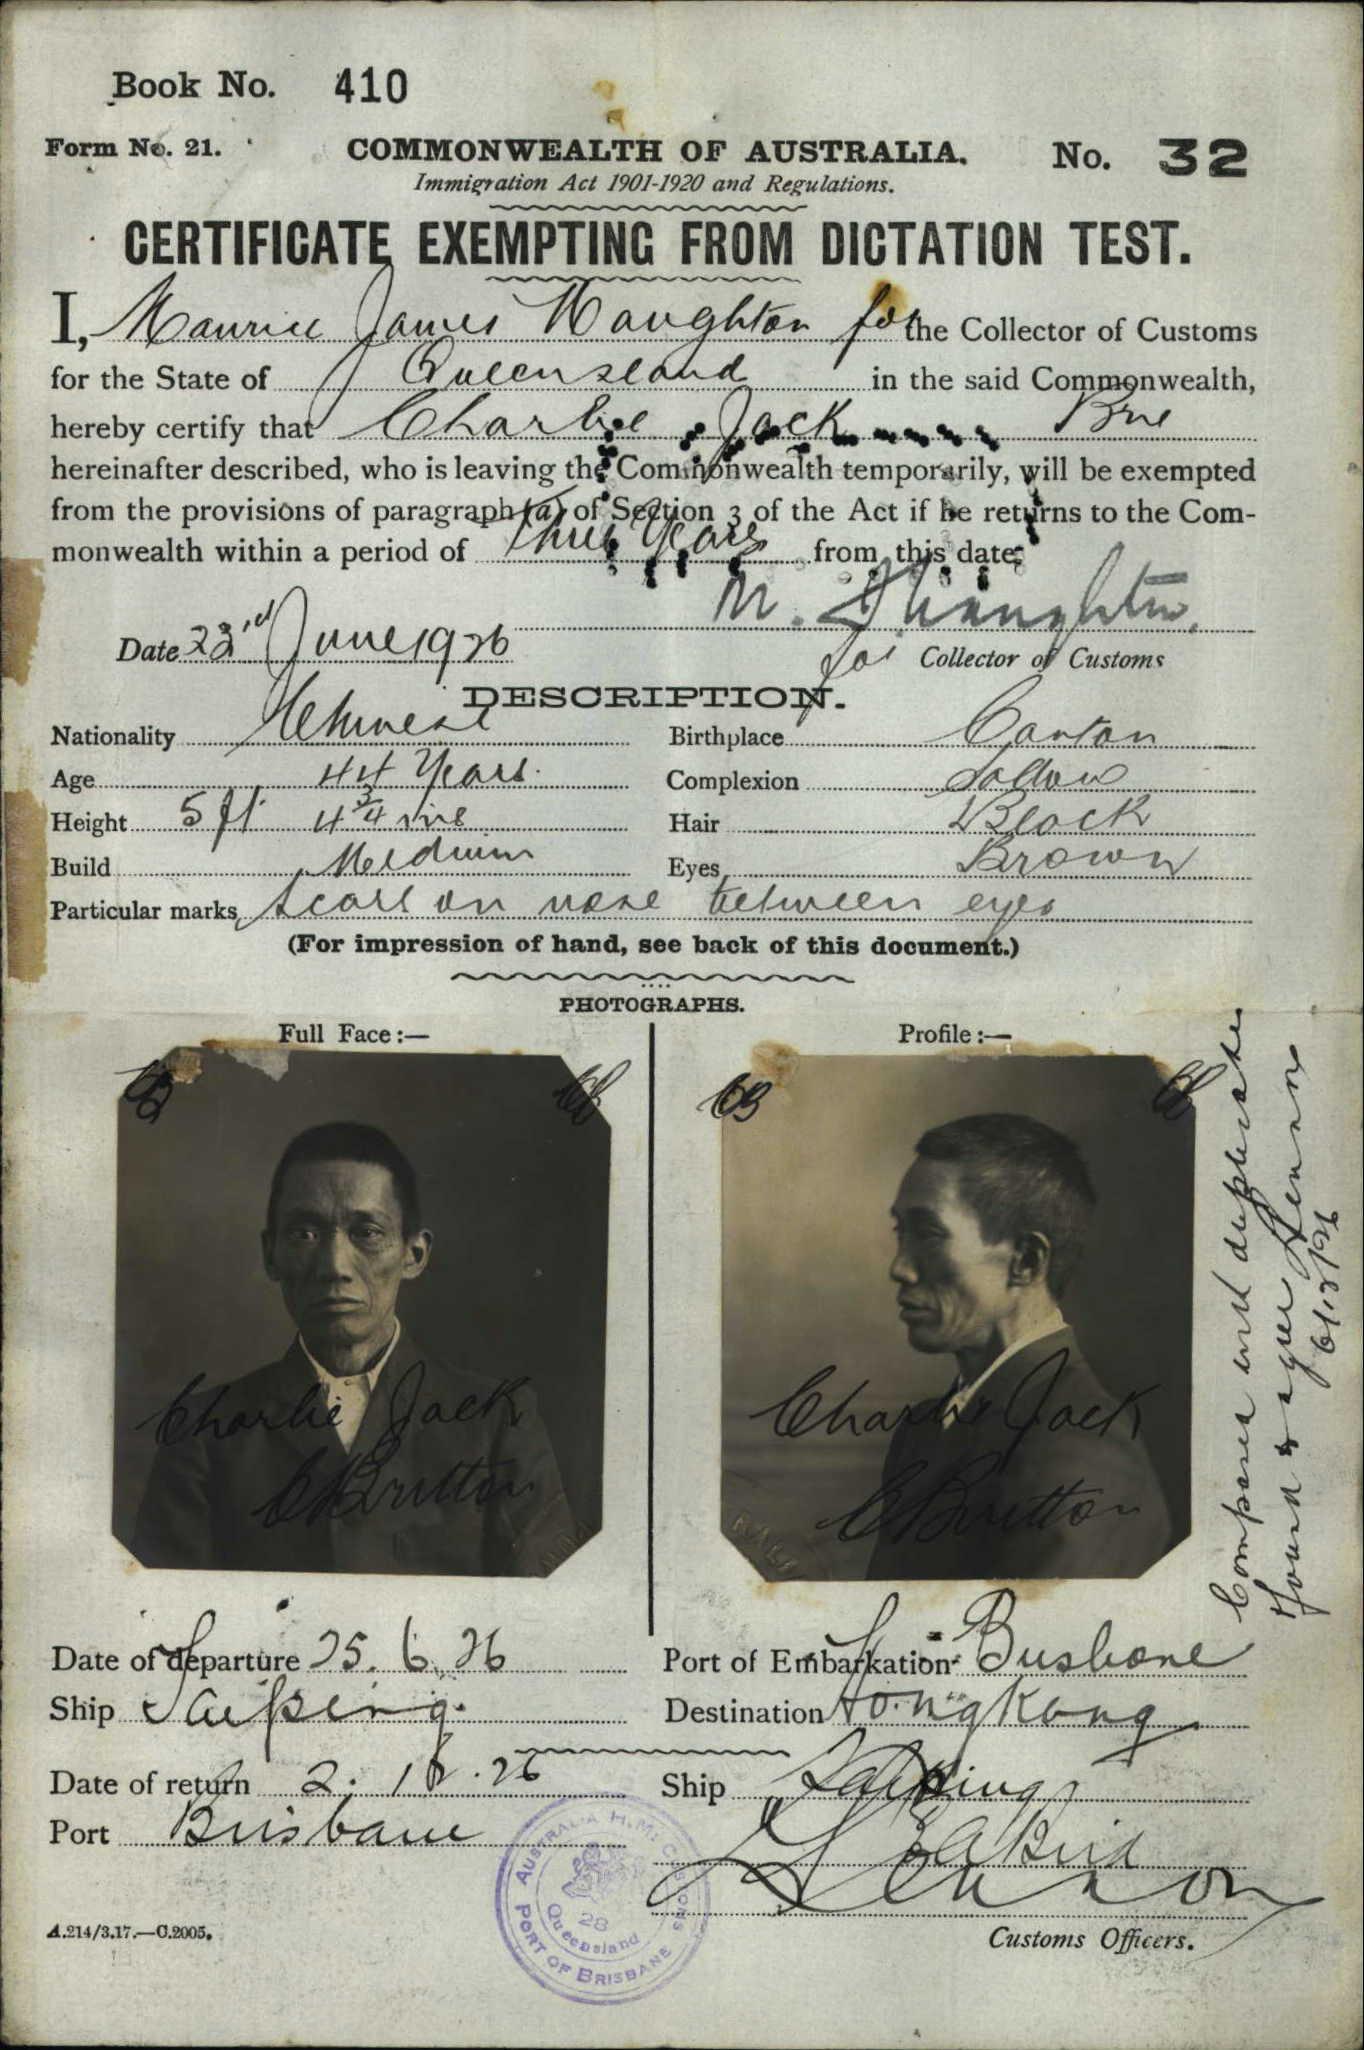 Book No. 410
Form No. 21. COMMONWEALTH OF AUSTRALIA. No. 32
Immigration Act 1901-1920 and Regulations.
CERTIFICATE EXEMPTING FROM DICTATION TEST.
I, Maurice James Naughton for the Collector of Customs
for the State of Queensland in the said Commonwealth,
hereby certify that Charlie Jack Bne
hereinafter described, who is leaving the Commonwealth temporarily, will be exempted
from the provisions of paragraph (a) of Section 3 of the Act if he returns to the Com-
monwealth within a period of Three Years from this date.
M. J. Naughton
Date 22nd June 1926 for Collector of Customs
DESCRIPTION.
Nationality Chinese Birthplace Canton
Age 44 Years. Complexion Sallow
Height 5 ft 4 3/4 ins Hair Black
Build Medium Eyes Brown
Particular marks Scars on nose between eyes
(For impression of hand, see back of this document.)
PHOTOGRAPHS.
Full Face :— Profile :—
CB CB CB CB
Charlie Jack Charlie Jack
CBritton CBritton
Compared with duplicate
found to agree Lennon
6/12/26
Date of departure 25.6.26 Port of Embarkation Brisbane
Ship Taiping. Destination Hongkong
Date of return 2.12.26 Ship Taiping
Port Brisbane
Lennon
Customs Officers.
AUSTRALIA H.M. CUSTOMS
28
Queensland
PORT OF BRISBANE
A.214/3.17.—C.2005.